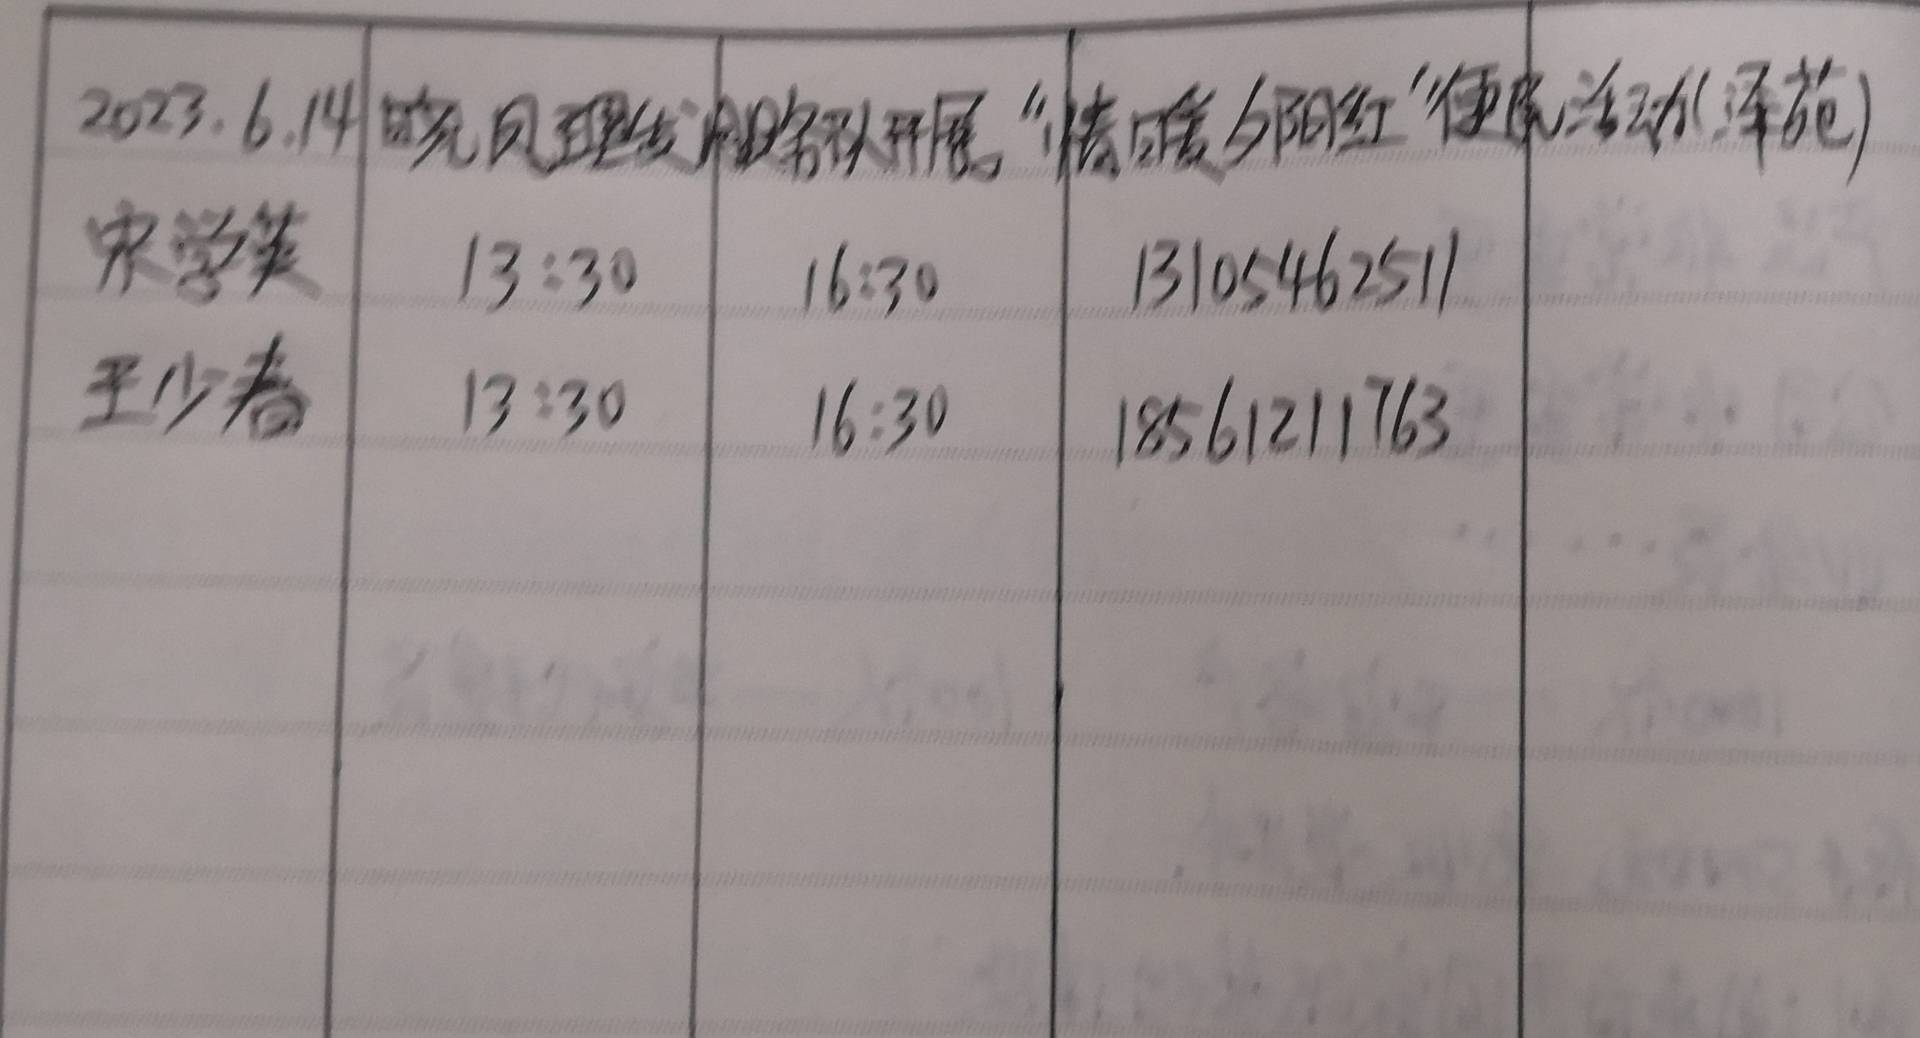 2023.6.14 晓风理发服务队开展“情暖夕阳红”便民活动(泽苑)
宋学英 13:30 16:30 13105462511
王少春 13:30 16:30 18561211763